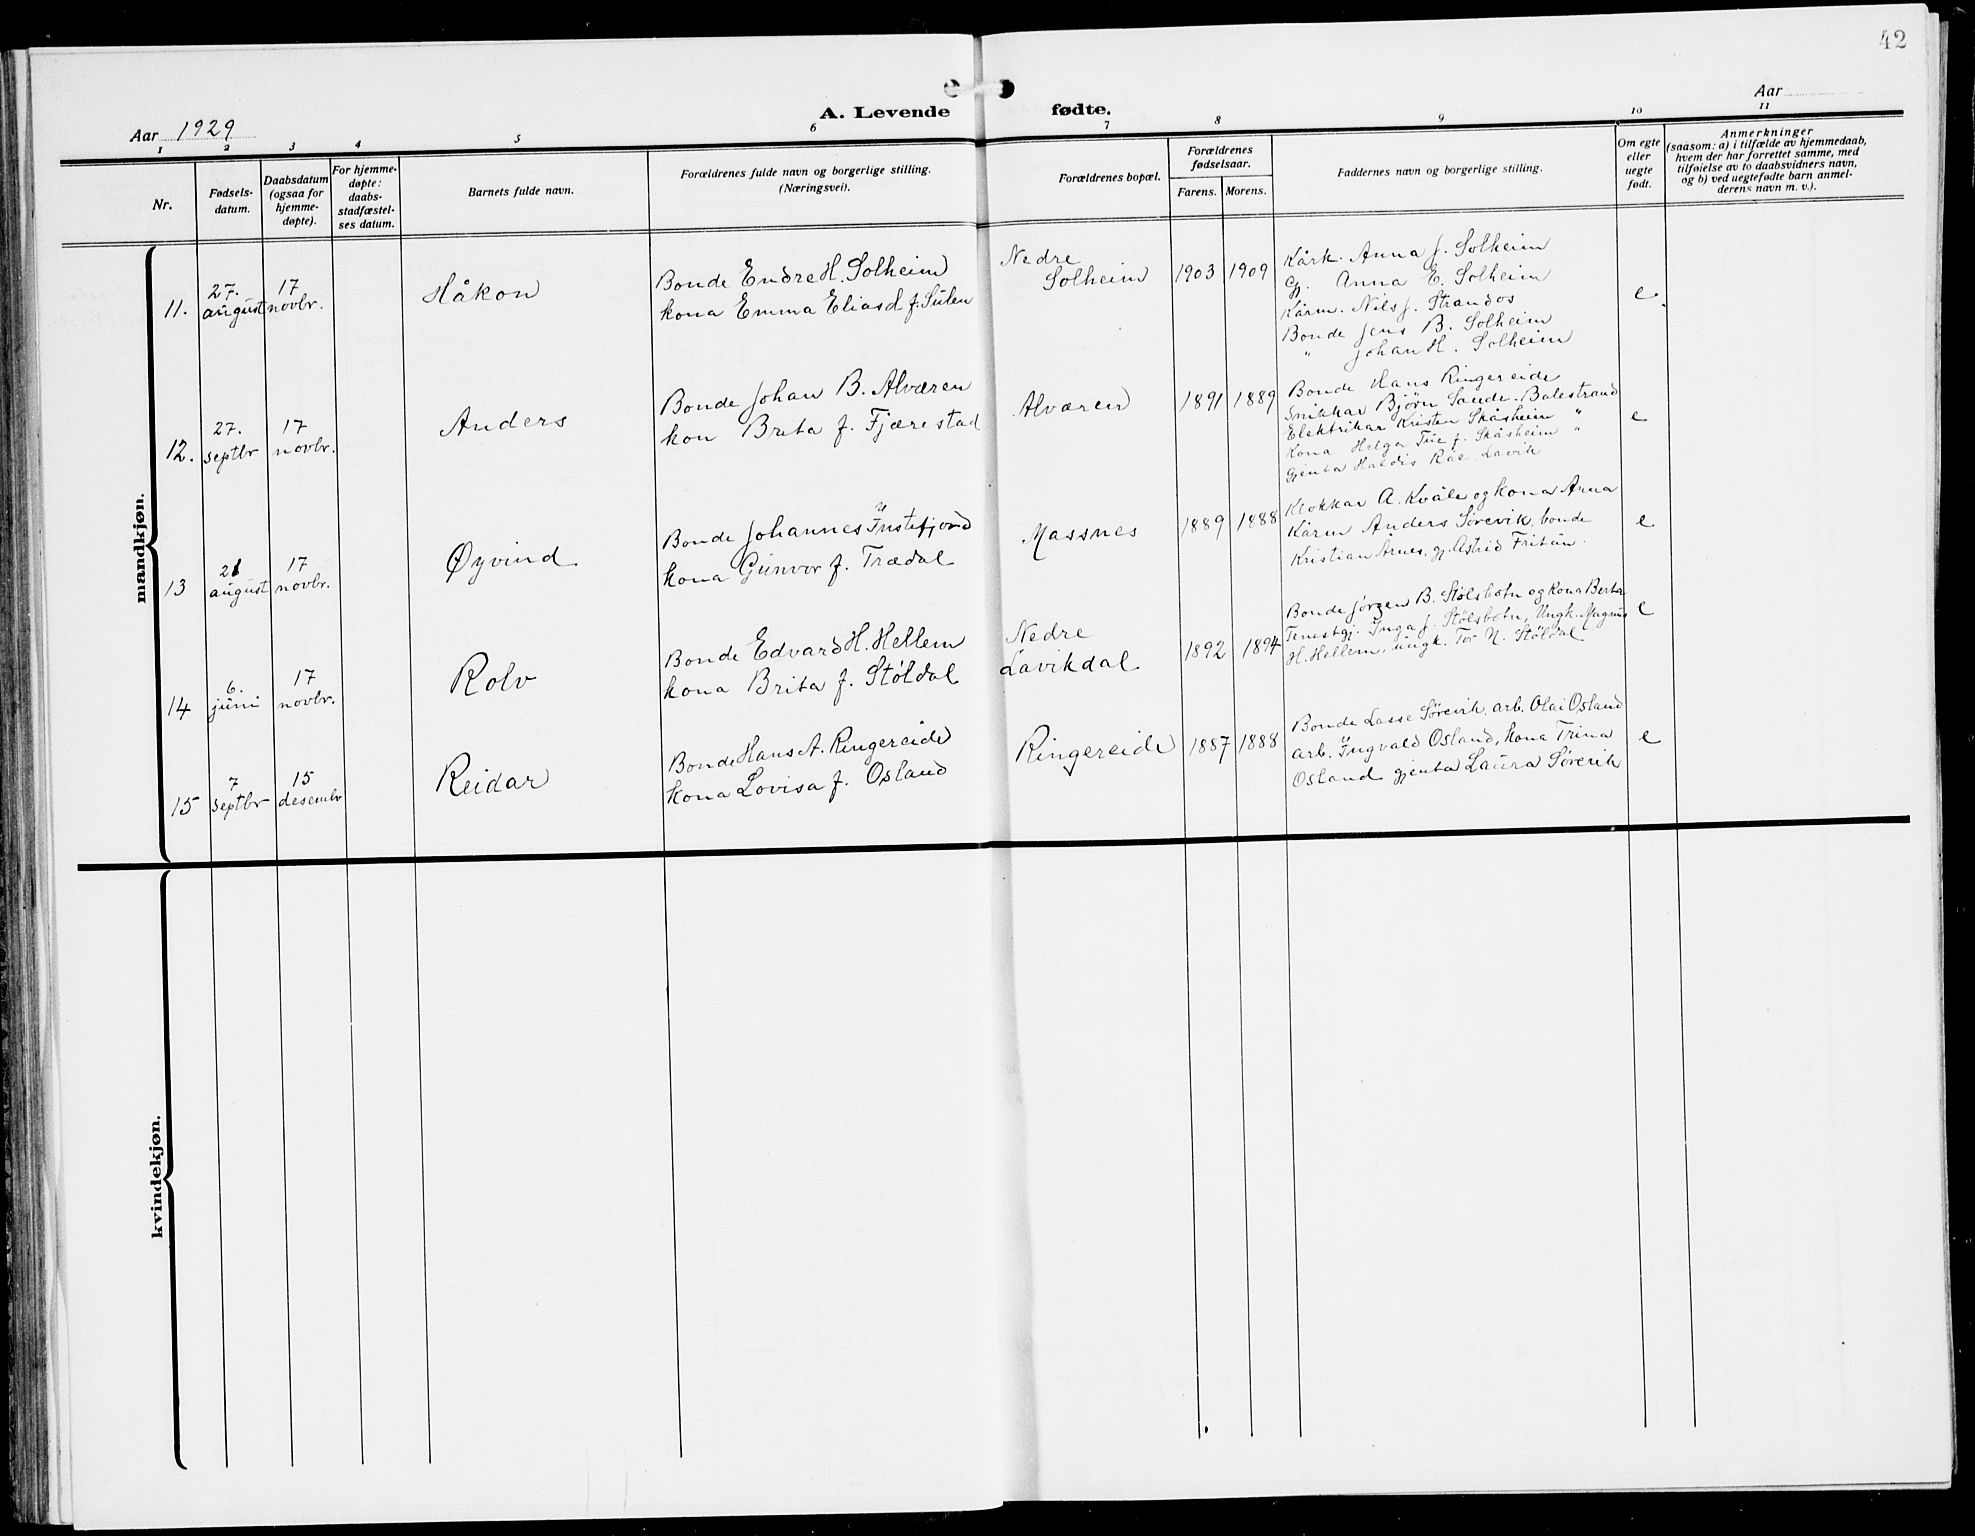 42
A. Levende fødte.
Aar 1929
Aar
1 2 3 4 5 6 7 8 9 10 11
Nr.
Fødsels-
datum.
Daabsdatum
(ogsaa for
hjemme-
døpte).
For hjemme-
døpte:
daabs-
stadfæstel-
ses datum.
Barnets fulde navn.
Forældrenes fulde navn og borgerlige stilling.
(Næringsvei).
Forældrenes bopæl.
Forældrenes
fødselsaar.
Farens. Morens.
Faddernes navn og borgerlige stilling.
Om egte
eller
uegte
født.
Anmerkninger
(saasom: a) i tilfælde av hjemmedaab,
hvem der har forrettet samme, med
tilføielse av to daabsvidners navn,
og b) ved uegtefødte barn anmel-
derens navn m. v.).
mandkjøn.
11.
27.
august
17
novbr.
Håkon
Bonde Endre H. Solheim
kona Emma Eliasd f. Sulen
Nedre
Solheim
1903 1909
Kårk. Anna J. Solheim
Gj. Anna E. Solheim
Kårm. Nils J. Strandos
Bonde Jens B. Solheim
" Johan H. Solheim
e
12.
27.
septbr
17
novbr.
Anders
Bonde Johan B. Alværen
kon Brita f. Fjærestad
Alværen
1891 1889
Bonde Hans Ringereide
Snikkar Bjørn Sande. Balestrand
Elektrikar Kristen Skåsheim "
Kona Helga Tue f. Skåsheim "
Gjenta Haldis Råe Lavik
e
13
21
august
17
novbr.
Øyvind
Bonde Johannes Instefjord
kona Gunvor f. Trædal
Massnes
1889 1888
Klokkar A. Kvåle og kona Anna
Kårm Anders Sørevik, bonde
Kristian Årnes, gj. Astrid Fritun.
e
14
6.
juni
17
novbr.
Rolv
Bonde Edvard H. Hellem
kona Brita f. Støldal
Nedre
Lavikdal
1892 1894
Bonde Jørgen B. Stølsbotn og kona Berta
Tenestgj. Inga J. Stølsbotn, Ungk. Magnus
H. Hellem, ungk. Tor N. Støldal.
e
15
7
septbr
15
desembr
Reidar
Bonde Hans A. Ringereide
kona Lovisa f. Osland
Ringereide
1887 1888
Bonde Lasse Sørevik, arb. Olai Osland
arb. Ingvald Osland, kona Trina
Osland gjenta Laura Sørevik
e
kvindekjøn.